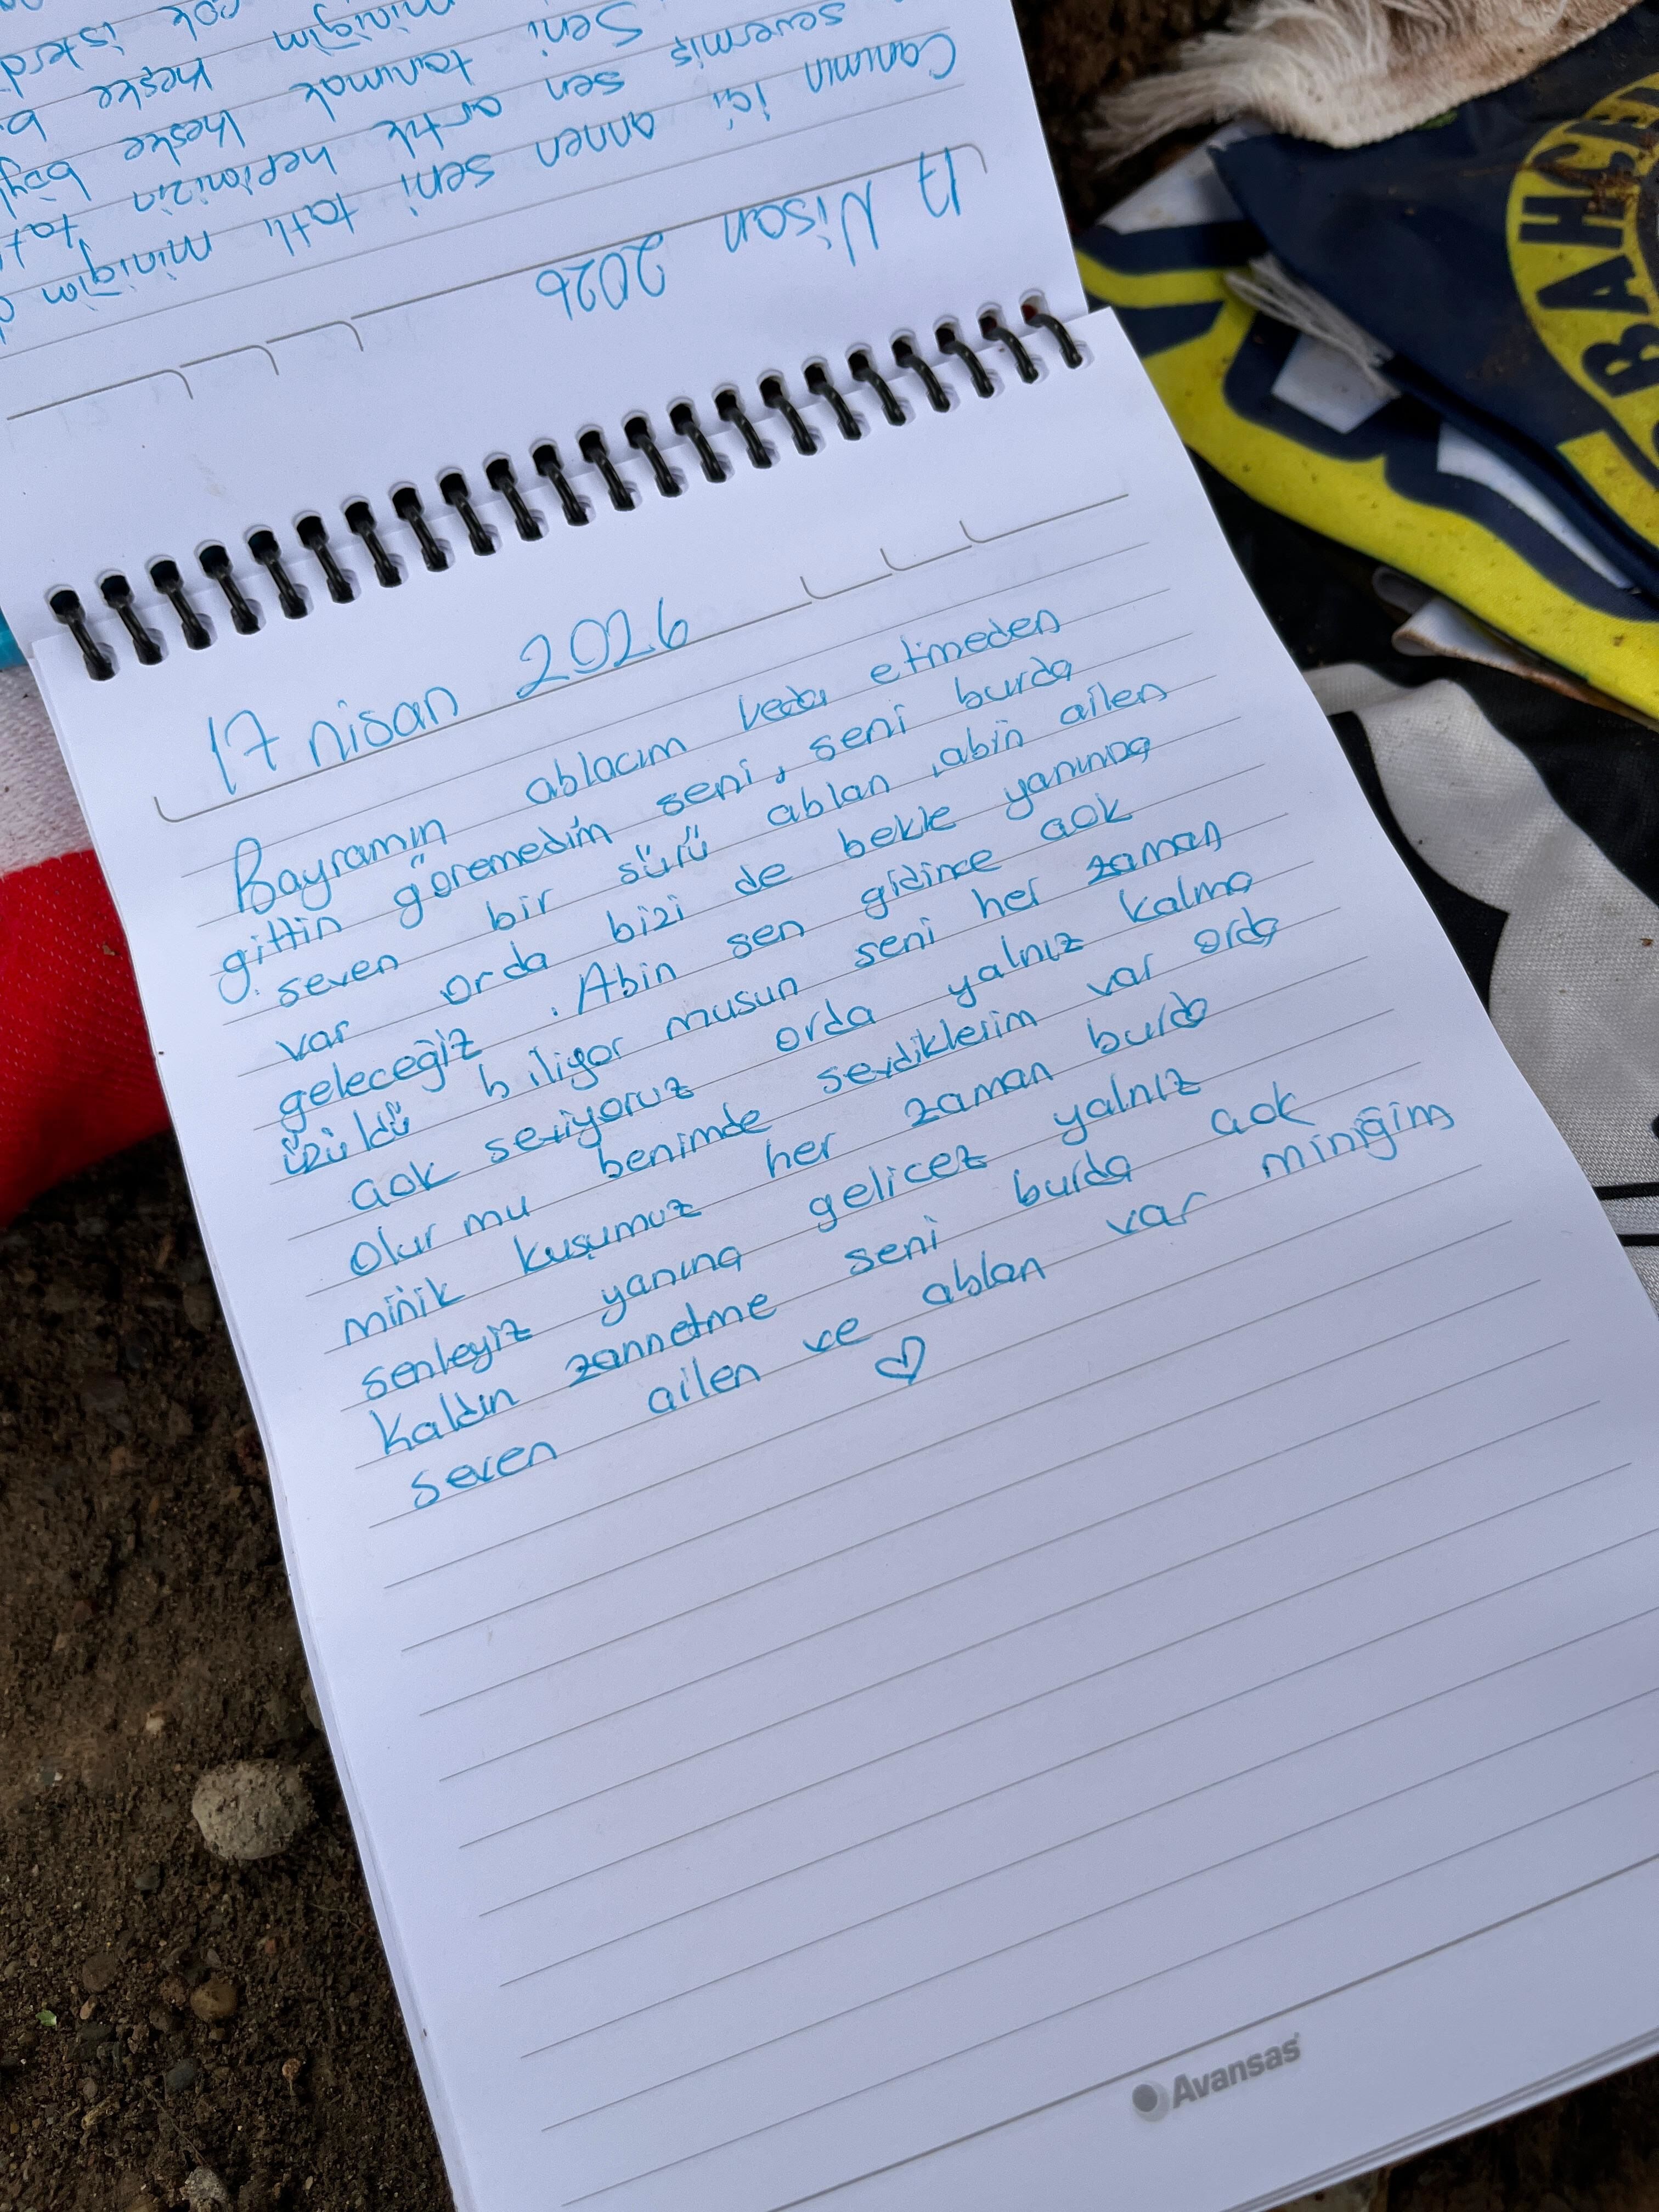 17 Nisan 2026
Canımın içi annen seni tatlı miniğim
severmiş sen artık hepimizin
Seni tanımak keske
miniğim keske
çok isterd
17 nisan 2026
Bayramın ablacım veda etmeden
gittin göremedim seni, seni burda
seven bir sürü ablan, abin ailen
var orda bizi de bekle yanına
geleceğiz. Abin sen gidince çok
üzüldü biliyor musun seni her zaman
çok seviyoruz orda yalnız kalma
olur mu benimde sevdiklerim var orda
minik kuşumuz her zaman burda
senleyiz yanına gelicez yalnız
kaldın zannetme seni burda çok
seven ailen ve ablan var miniğim
♡
Avansas
BAHCE